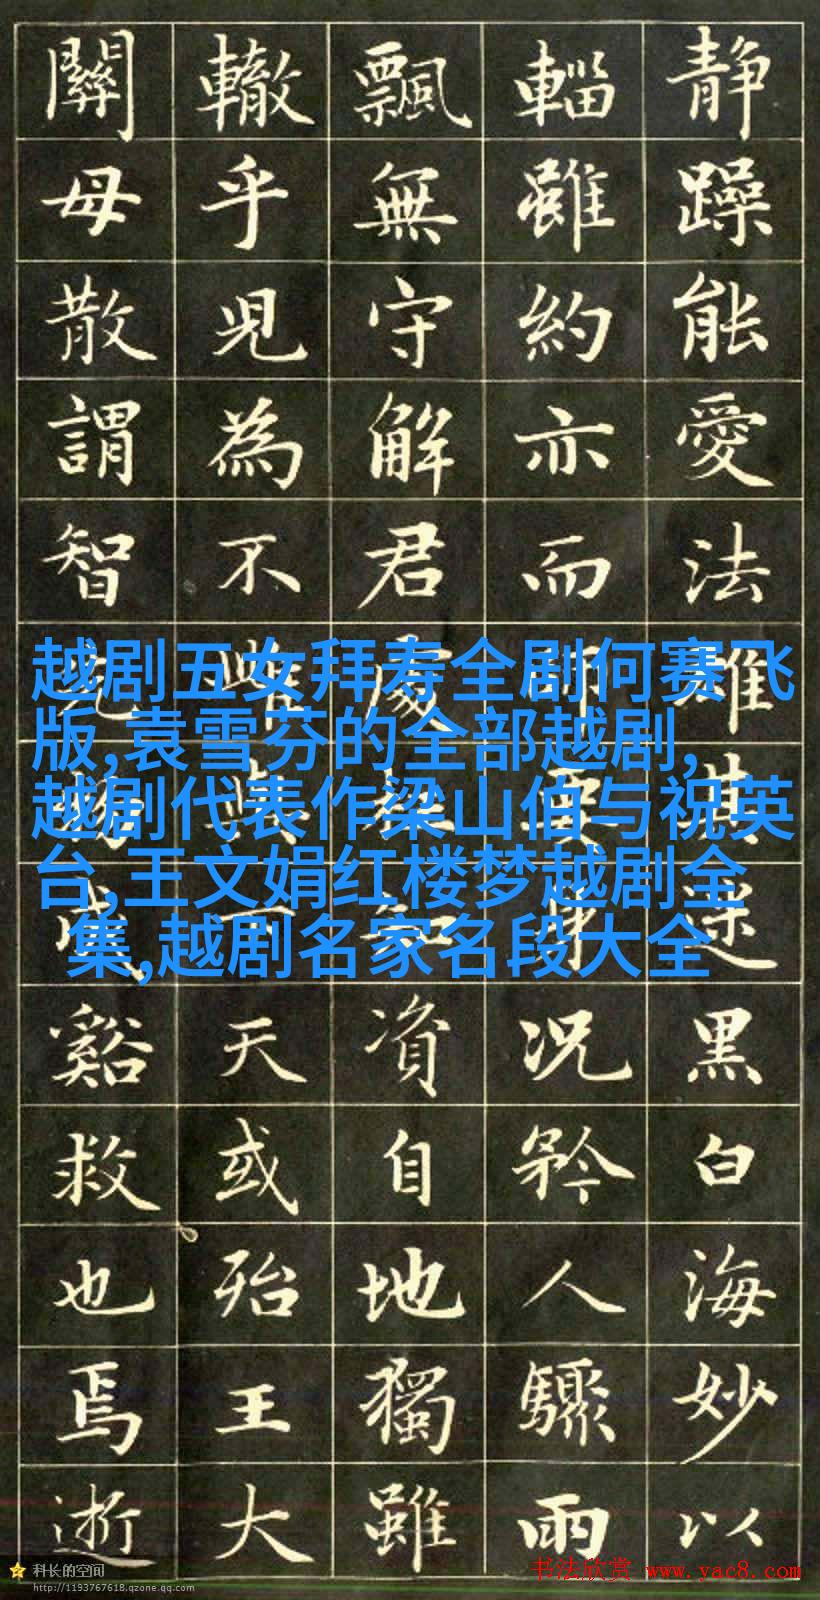 静躁能愛法雄其迷黑白海妙以
輜雖約亦而師要身况矜人驟雨
飄無守解君處知資自地獨雖
轍乎見為不唯與可天或殆王大
關母散謂智成谿救也焉逝
越剧五女拜寿全剧何赛飞
版,袁雪芬的全部越剧,
越剧代表作梁山伯与祝英
台,王文娟红楼梦越剧全
集,越剧名家名段大全
科长的空间
http://1193767618.qzone.qq.com
书法欣赏 www.yac8.com